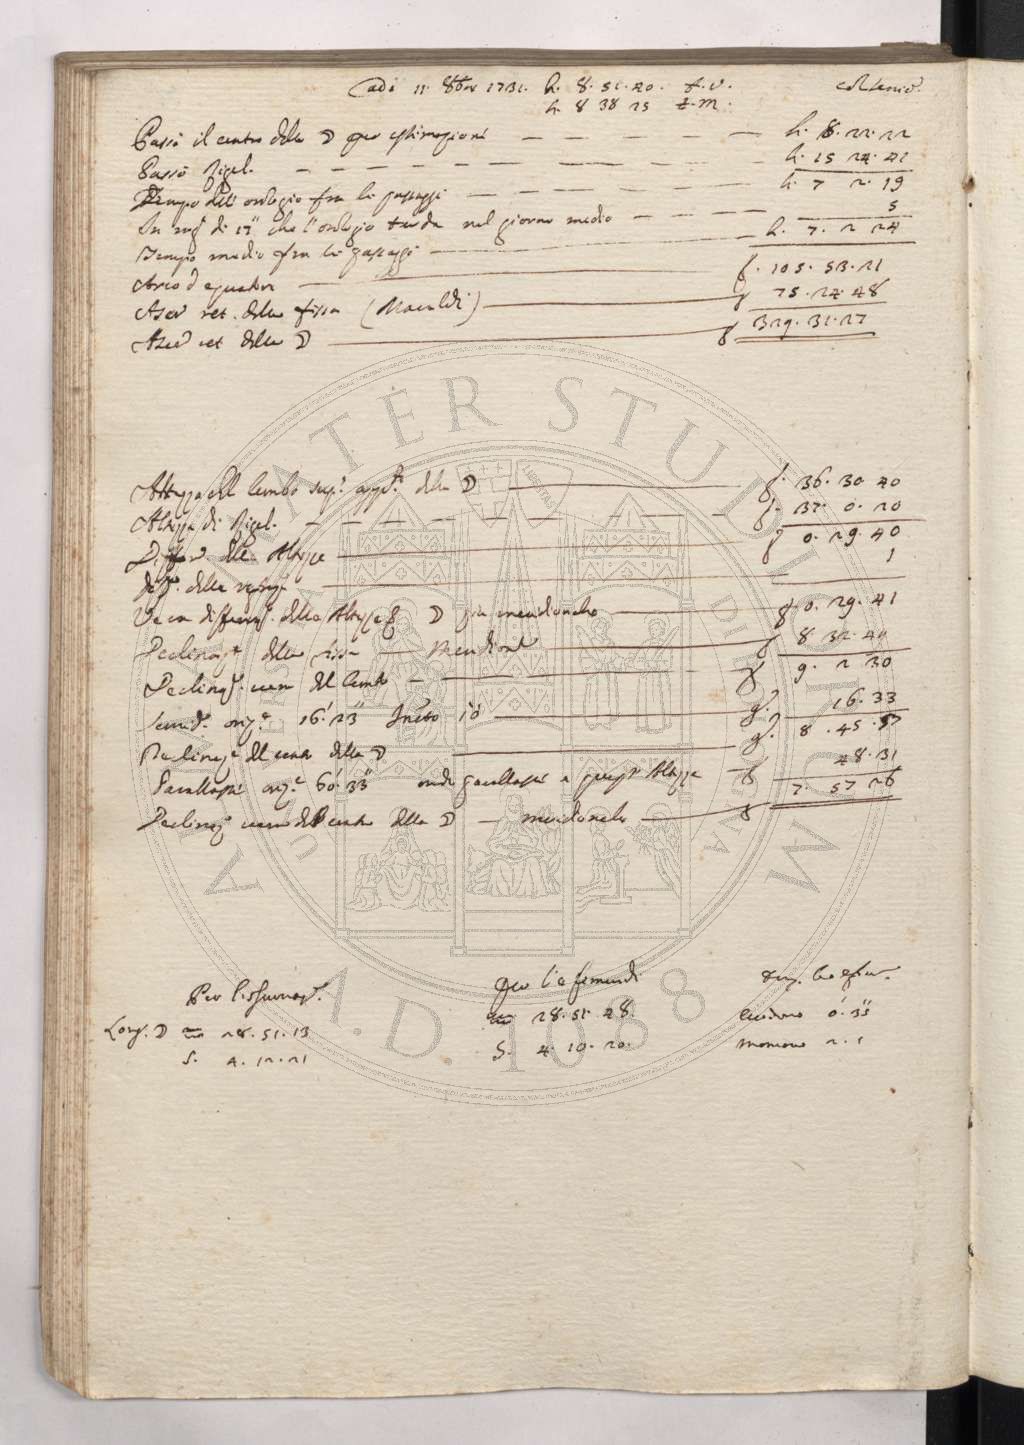 Adi 11 8bre 1731. h. 8. 51. 20. t. v.
h. 8 38 25 t. m.
Passò il centro della ☽ per estimazione h. 8. 22. 22
Passò Rigel. h. 15 24. 41
Tempo dell' orologio fra li passaggi h. 7 2. 19
In di 17" che l'orologio tarda nel giorno medio 5
Tempo medio fra li passaggi h. 7. 2 24
Arco d' equatore g. 105. 53. 21
Ascen ret. della fissa (Manfredi) g 75. 24. 48
Ascen ret della ☽ g 329. 31. 27
Altezza del lembo sup. app. della ☽ g. 36. 30 40
Altezza di Rigel. g. 37. 0. 20
Differ delle Altezze g 0. 29. 40
della 1
Vera differenz. delle Altezze ☽ più meridionale g 0. 29. 41
Declinaz. della fissa Meridion. g 8 32. 49
Declinaz. vera del lembo g 9. 2 30
Semid. oriz. 16' 23" 10 g. 16. 33
Declinaz. del centro della ☽ g. 8. 45. 57
Parallasse oriz. 60' 33" onde parallasse a questa Altezza 48. 31
Declinaz. vera del centro della ☽ meridionale g 7. 57 26
Per l'osservaz.
Long. ☽ ♒ 28. 51. 13
S. 4. 12. 21
Per l'efemeridi
♒ 28. 51. 48.
S. 4. 10. 20.
0' 35"
2. 1
ALMA MATER STUDIORUM
A.D. 1088